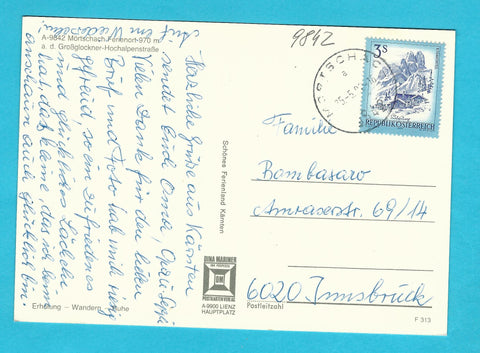 A-9842 Mörtschach Ferienort 970 m
a. d. Großglockner-Hochalpenstraße
Herzliche Grüße aus Kärnten
sendet Euch Oma, Opa u
Vielen Dank für den lieben
Brief und Foto hab mich
gefreut so ein zufriedenes
und glückliches Lächeln
anschauen auch glücklich bin.
Auf ein Wiedersehen
Erholung — Wandern Ruhe
Schönes Ferienland Kärnten
DINA MARINER
DM
POSTKARTEN VERLAG
A-9900 LIENZ
HAUPTPLATZ
9842
3S
REPUBLIK ÖSTERREICH
Familie
Bombasaro
Amraserstr. 69/14
6020 Innsbruck
Postleitzahl
F 313